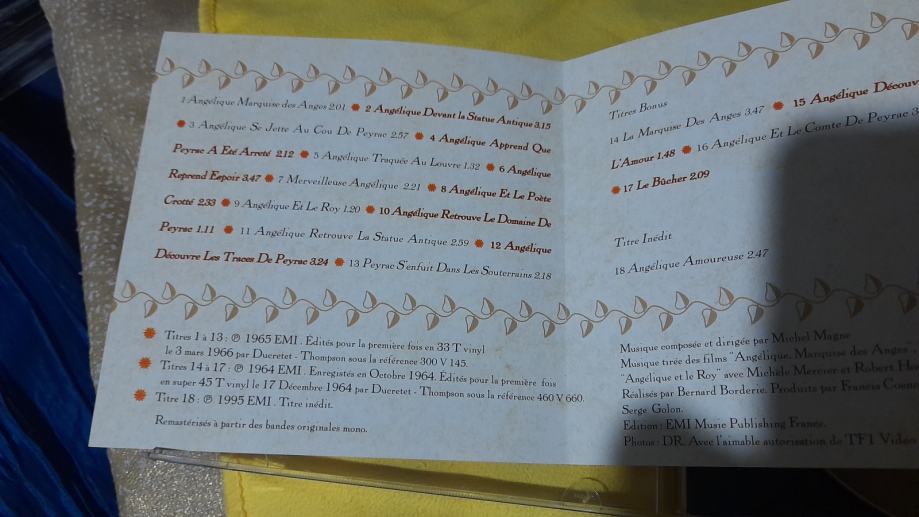 1 Angélique Marquise des Anges 2.01 2 Angélique Devant la Statue Antique 3.15
3 Angélique Se Jette Au Cou De Peyrac 2.57 4 Angélique Apprend Que
Peyrac A Eté Arreté 2.12 5 Angélique Traquée Au Louvre 1.32 6 Angélique
Reprend Espoir 3.47 7 Merveilleuse Angélique 2.21 8 Angélique Et Le Poète
Crotté 2.33 9 Angélique Et Le Roy 1.20 10 Angélique Retrouve Le Domaine De
Peyrac 1.11 11 Angélique Retrouve La Statue Antique 2.59 12 Angélique
Découvre Les Traces De Peyrac 3.24 13 Peyrac S'enfuit Dans Les Souterrains 2.18
Titres 1 à 13 : ℗ 1965 EMI . Edités pour la première fois en 33 T vinyl
le 3 mars 1966 par Ducretet - Thompson sous la référence 300 V 145.
Titres 14 à 17 : ℗ 1964 EMI . Enregistés en Octobre 1964. Edités pour la première fois
en super 45 T vinyl le 17 Décembre 1964 par Ducretet - Thompson sous la référence 460 V 660.
Titre 18 : ℗ 1995 EMI . Titre inédit.
Remastérisés à partir des bandes originales mono.
Titres Bonus
14 La Marquise Des Anges 3.47 15 Angélique Découv
L'Amour 1.48 16 Angélique Et Le Comte De Peyrac
17 Le Bûcher 2.09
Titre Inédit
18 Angélique Amoureuse 2.47
Musique composée et dirigée par Michel Magne
Musique tirée des films "Angélique, Marquise des Anges
"Angélique et le Roy" avec Michèle Mercier et Robert
Réalisés par Bernard Borderie. Produits par Francis
Serge Golon.
Edition : EMI Music Publishing France.
Photos : DR. Avec l'aimable autorisation de TF1 Vidéo